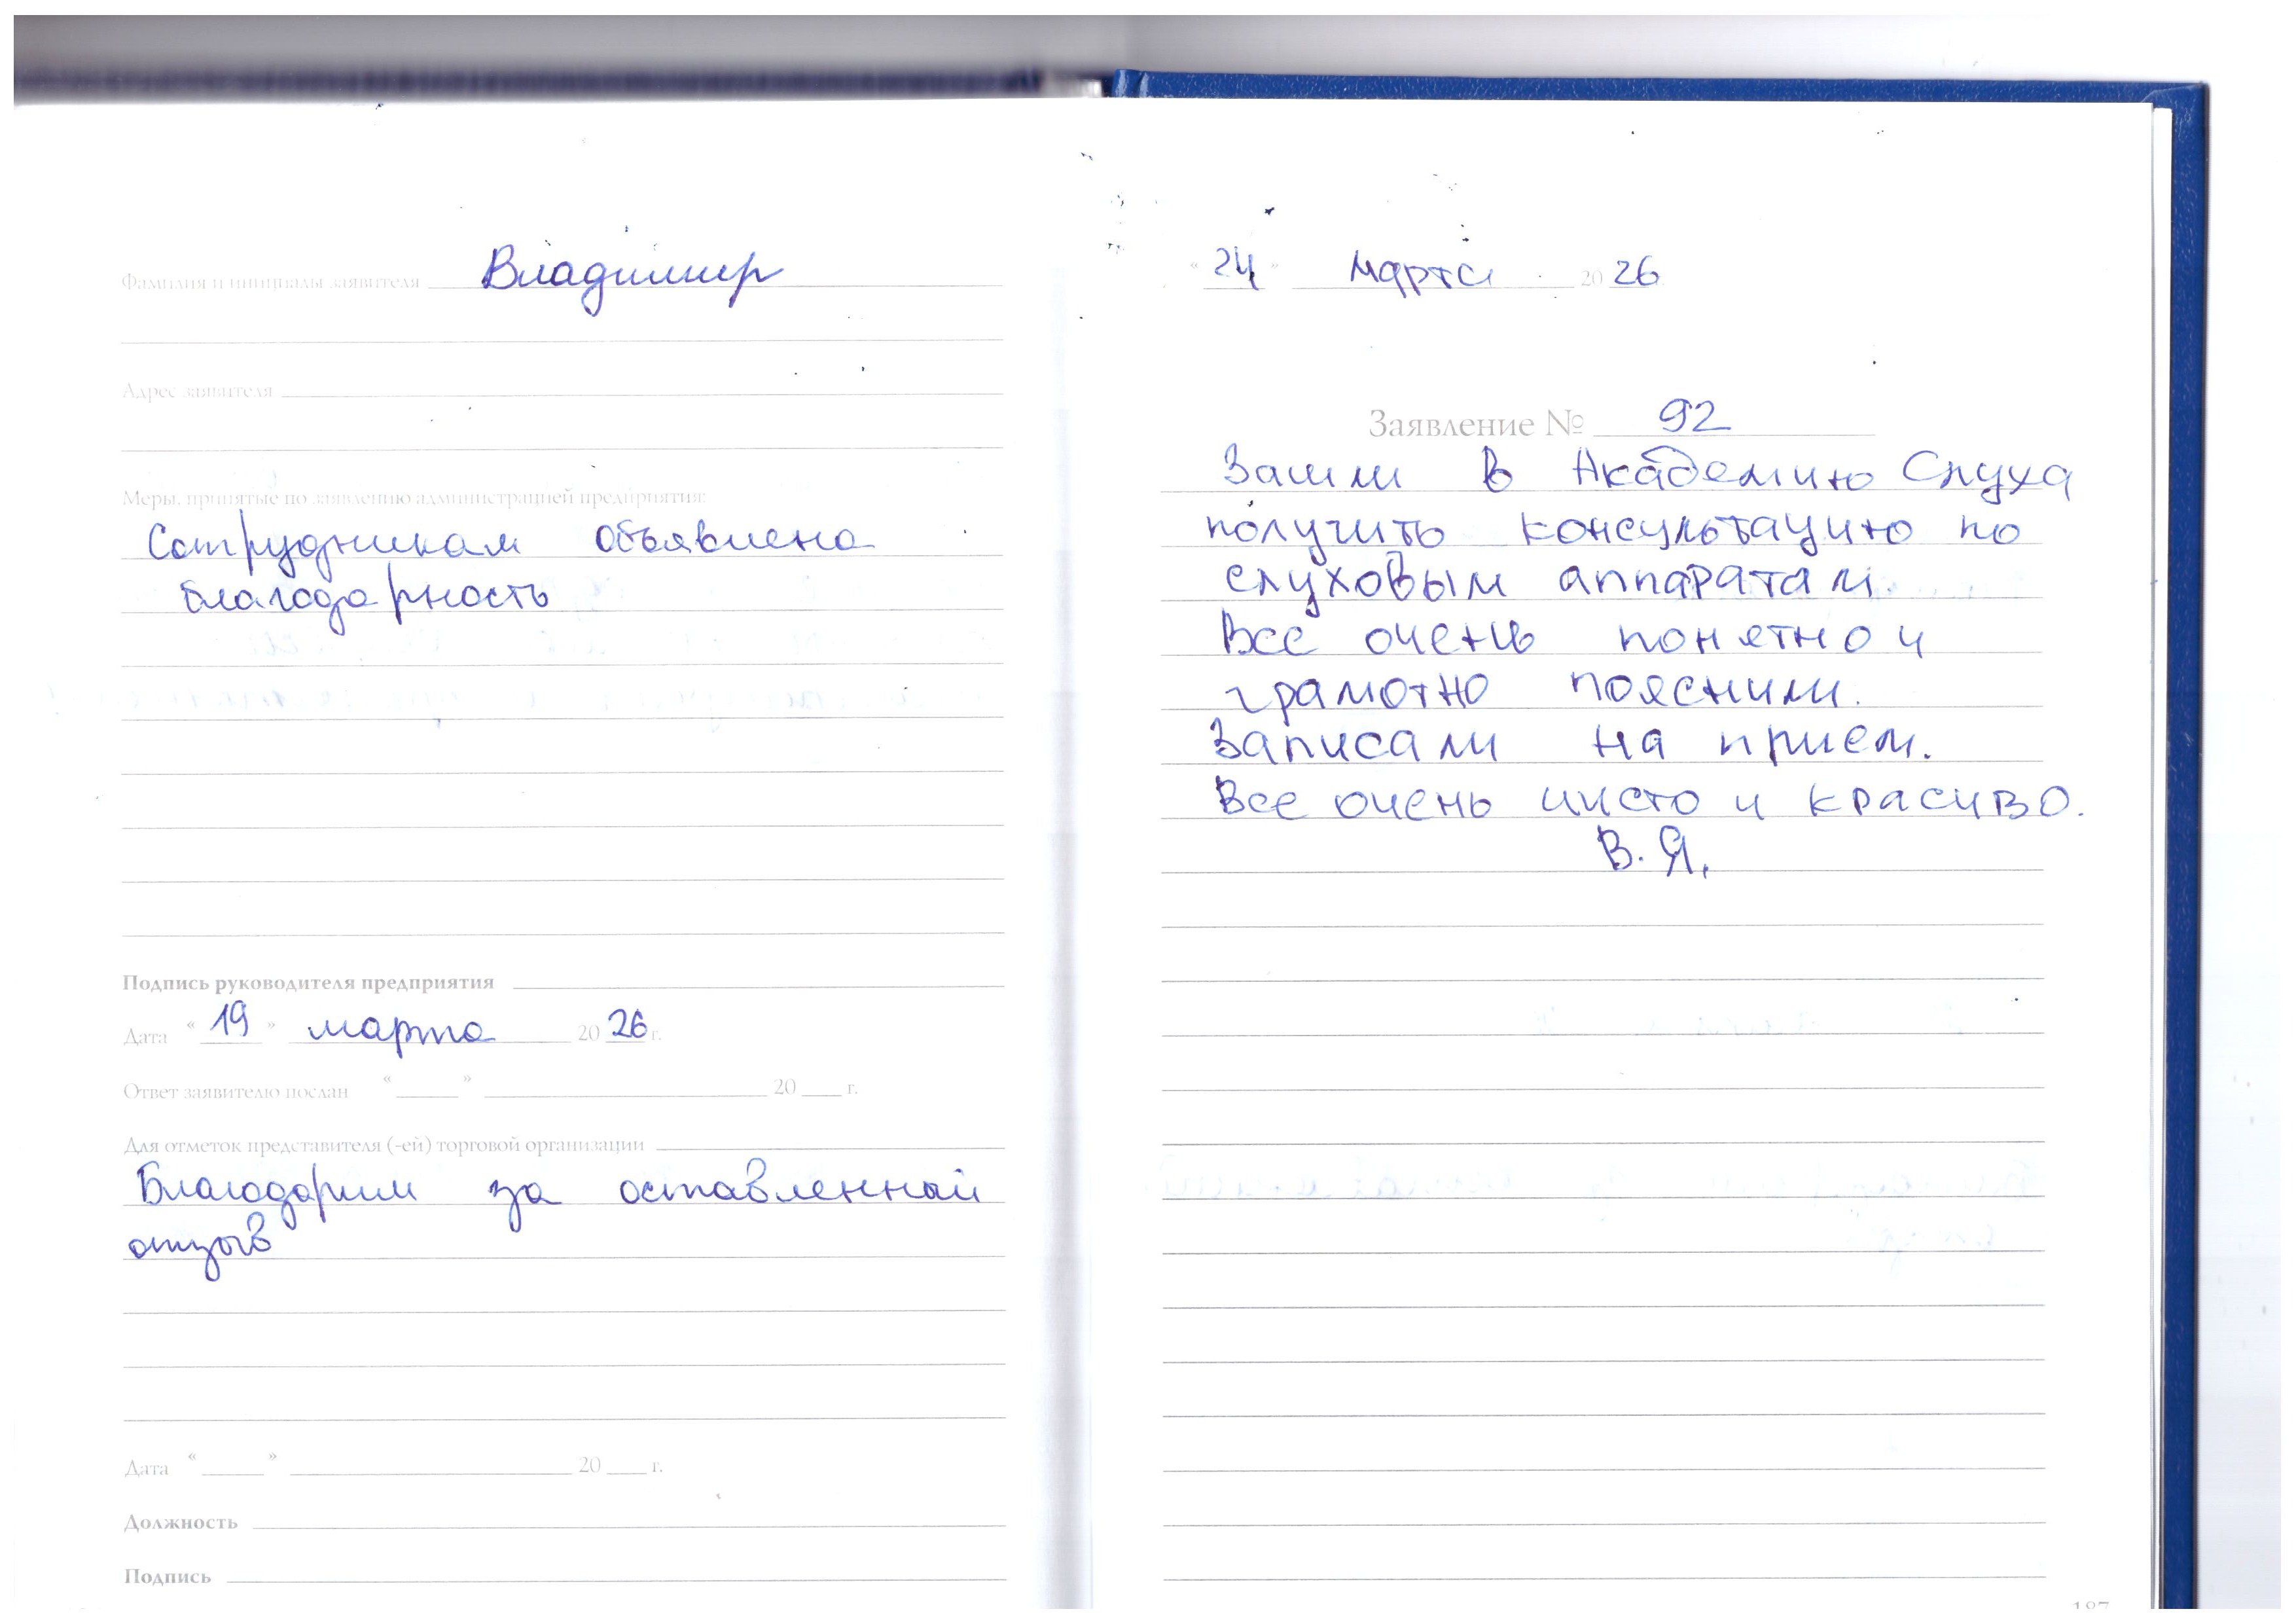 Фамилия и инициалы заявителя Владимир
Адрес заявителя
Меры, принятые по заявлению администрацией предприятия:
Сотрудникам объявлена
благодарность
Подпись руководителя предприятия
Дата "19" марта 2026 г.
Ответ заявителю послан " " 20 г.
Для отметок представителя (-ей) торговой организации
Благодарим за оставленный
отзыв
Дата " " 20 г.
Должность
Подпись
"24" марта 2026
Заявление № 92
Зашли в Академию Слуха
получить консультацию по
слуховым аппаратам
Все очень понятно и
грамотно пояснили.
Записали на прием.
Все очень чисто и красиво.
В. Я.
187